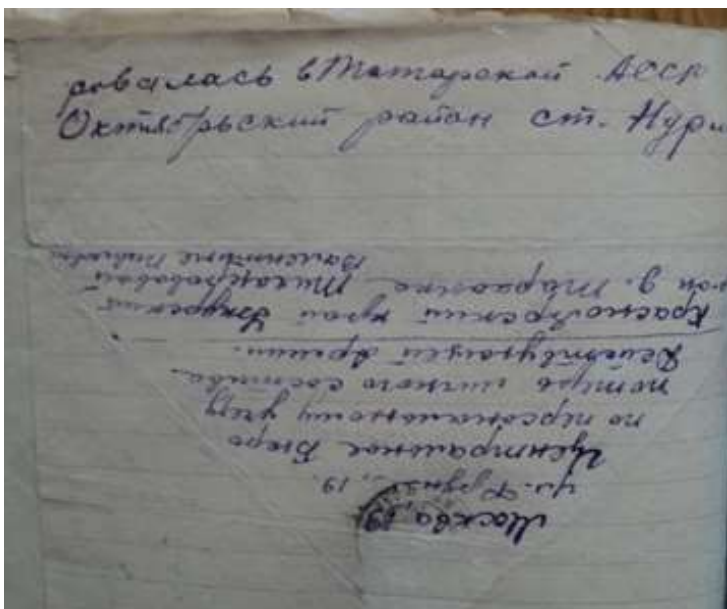 ровалась в Татарской АССР
Октябрьский район ст. Нурл
Москва, 19
ул. Фрунзе, 19.
Центральное Бюро
по персональному учету
потерь личного состава
Действующей Армии.
Красноярский край Ужурский
р-он д. Тарханка